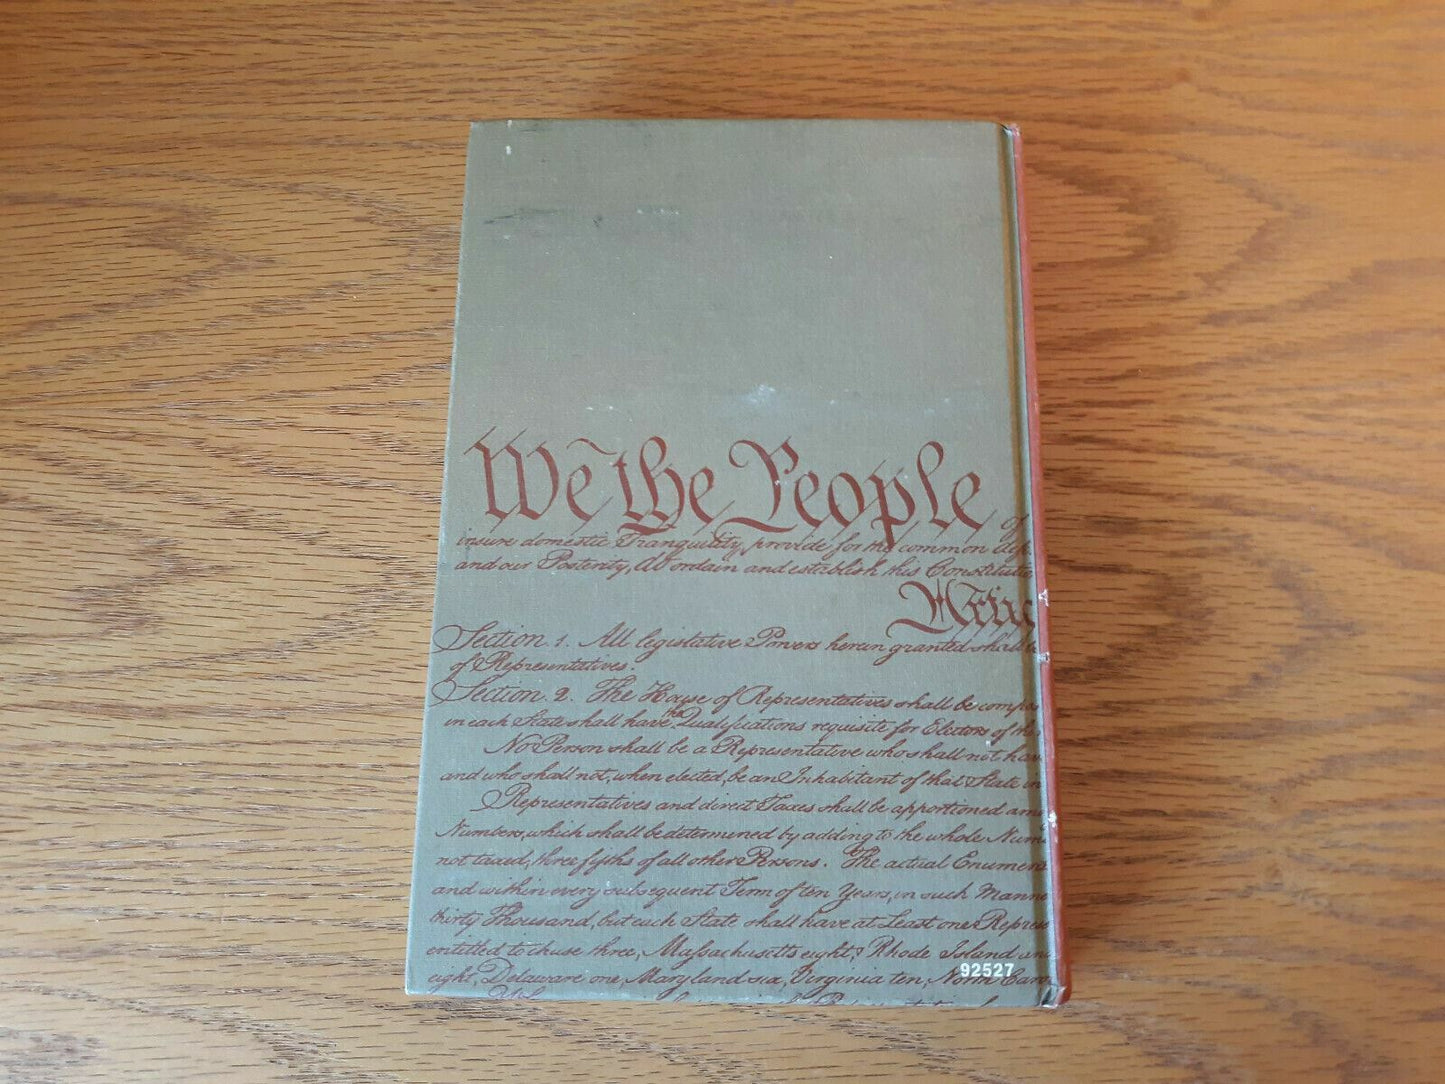 We the People of
insure domestic Tranquility, provide for the common def
and our Posterity, do ordain and establish this Constitutio
Artic
Section 1. All legislative Powers herein granted shall be
of Representatives.
Section 2. The House of Representatives shall be compos
in each State shall have the Qualifications requisite for Electors of the
No Person shall be a Representative who shall not have
and who shall not, when elected, be an Inhabitant of that State in
Representatives and direct Taxes shall be apportioned amo
Numbers, which shall be determined by adding to the whole Num
not taxed, three fifths of all other Persons. The actual Enumer
and within every subsequent Term of ten Years, in such Manne
thirty Thousand, but each State shall have at Least one Repres
entitled to chuse three, Massachusetts eight, Rhode Island an
eight, Delaware one, Maryland six, Virginia ten, North Caro
92527